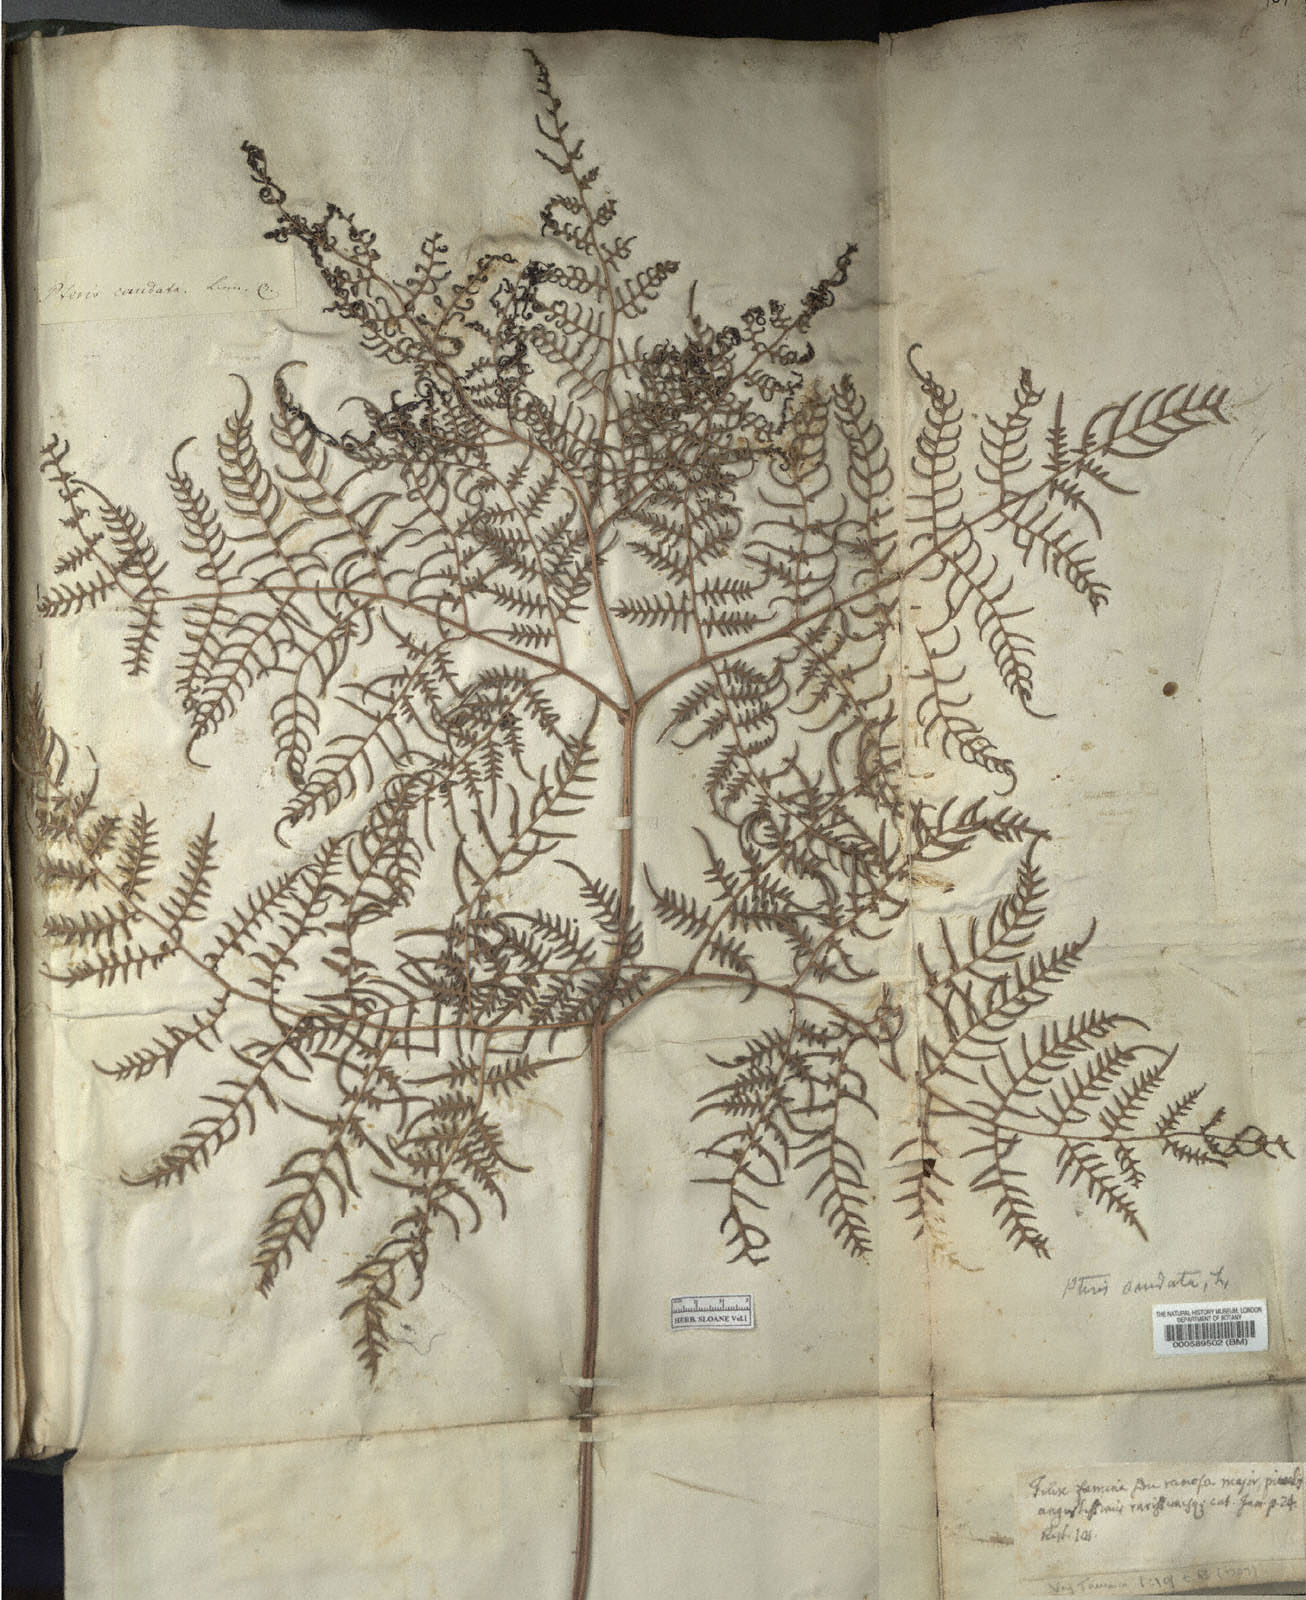 Pteris caudata. Linn. C.
HERB. SLOANE Vol.1
Pteris caudata, L,
THE NATURAL HISTORY MUSEUM, LONDON
DEPARTMENT OF BOTANY
000589502 (BM)
Filix famina seu ramosa major, pinnulis
angustissimis rarissimisq; cat. Jam. p. 24.
Hist. 101.